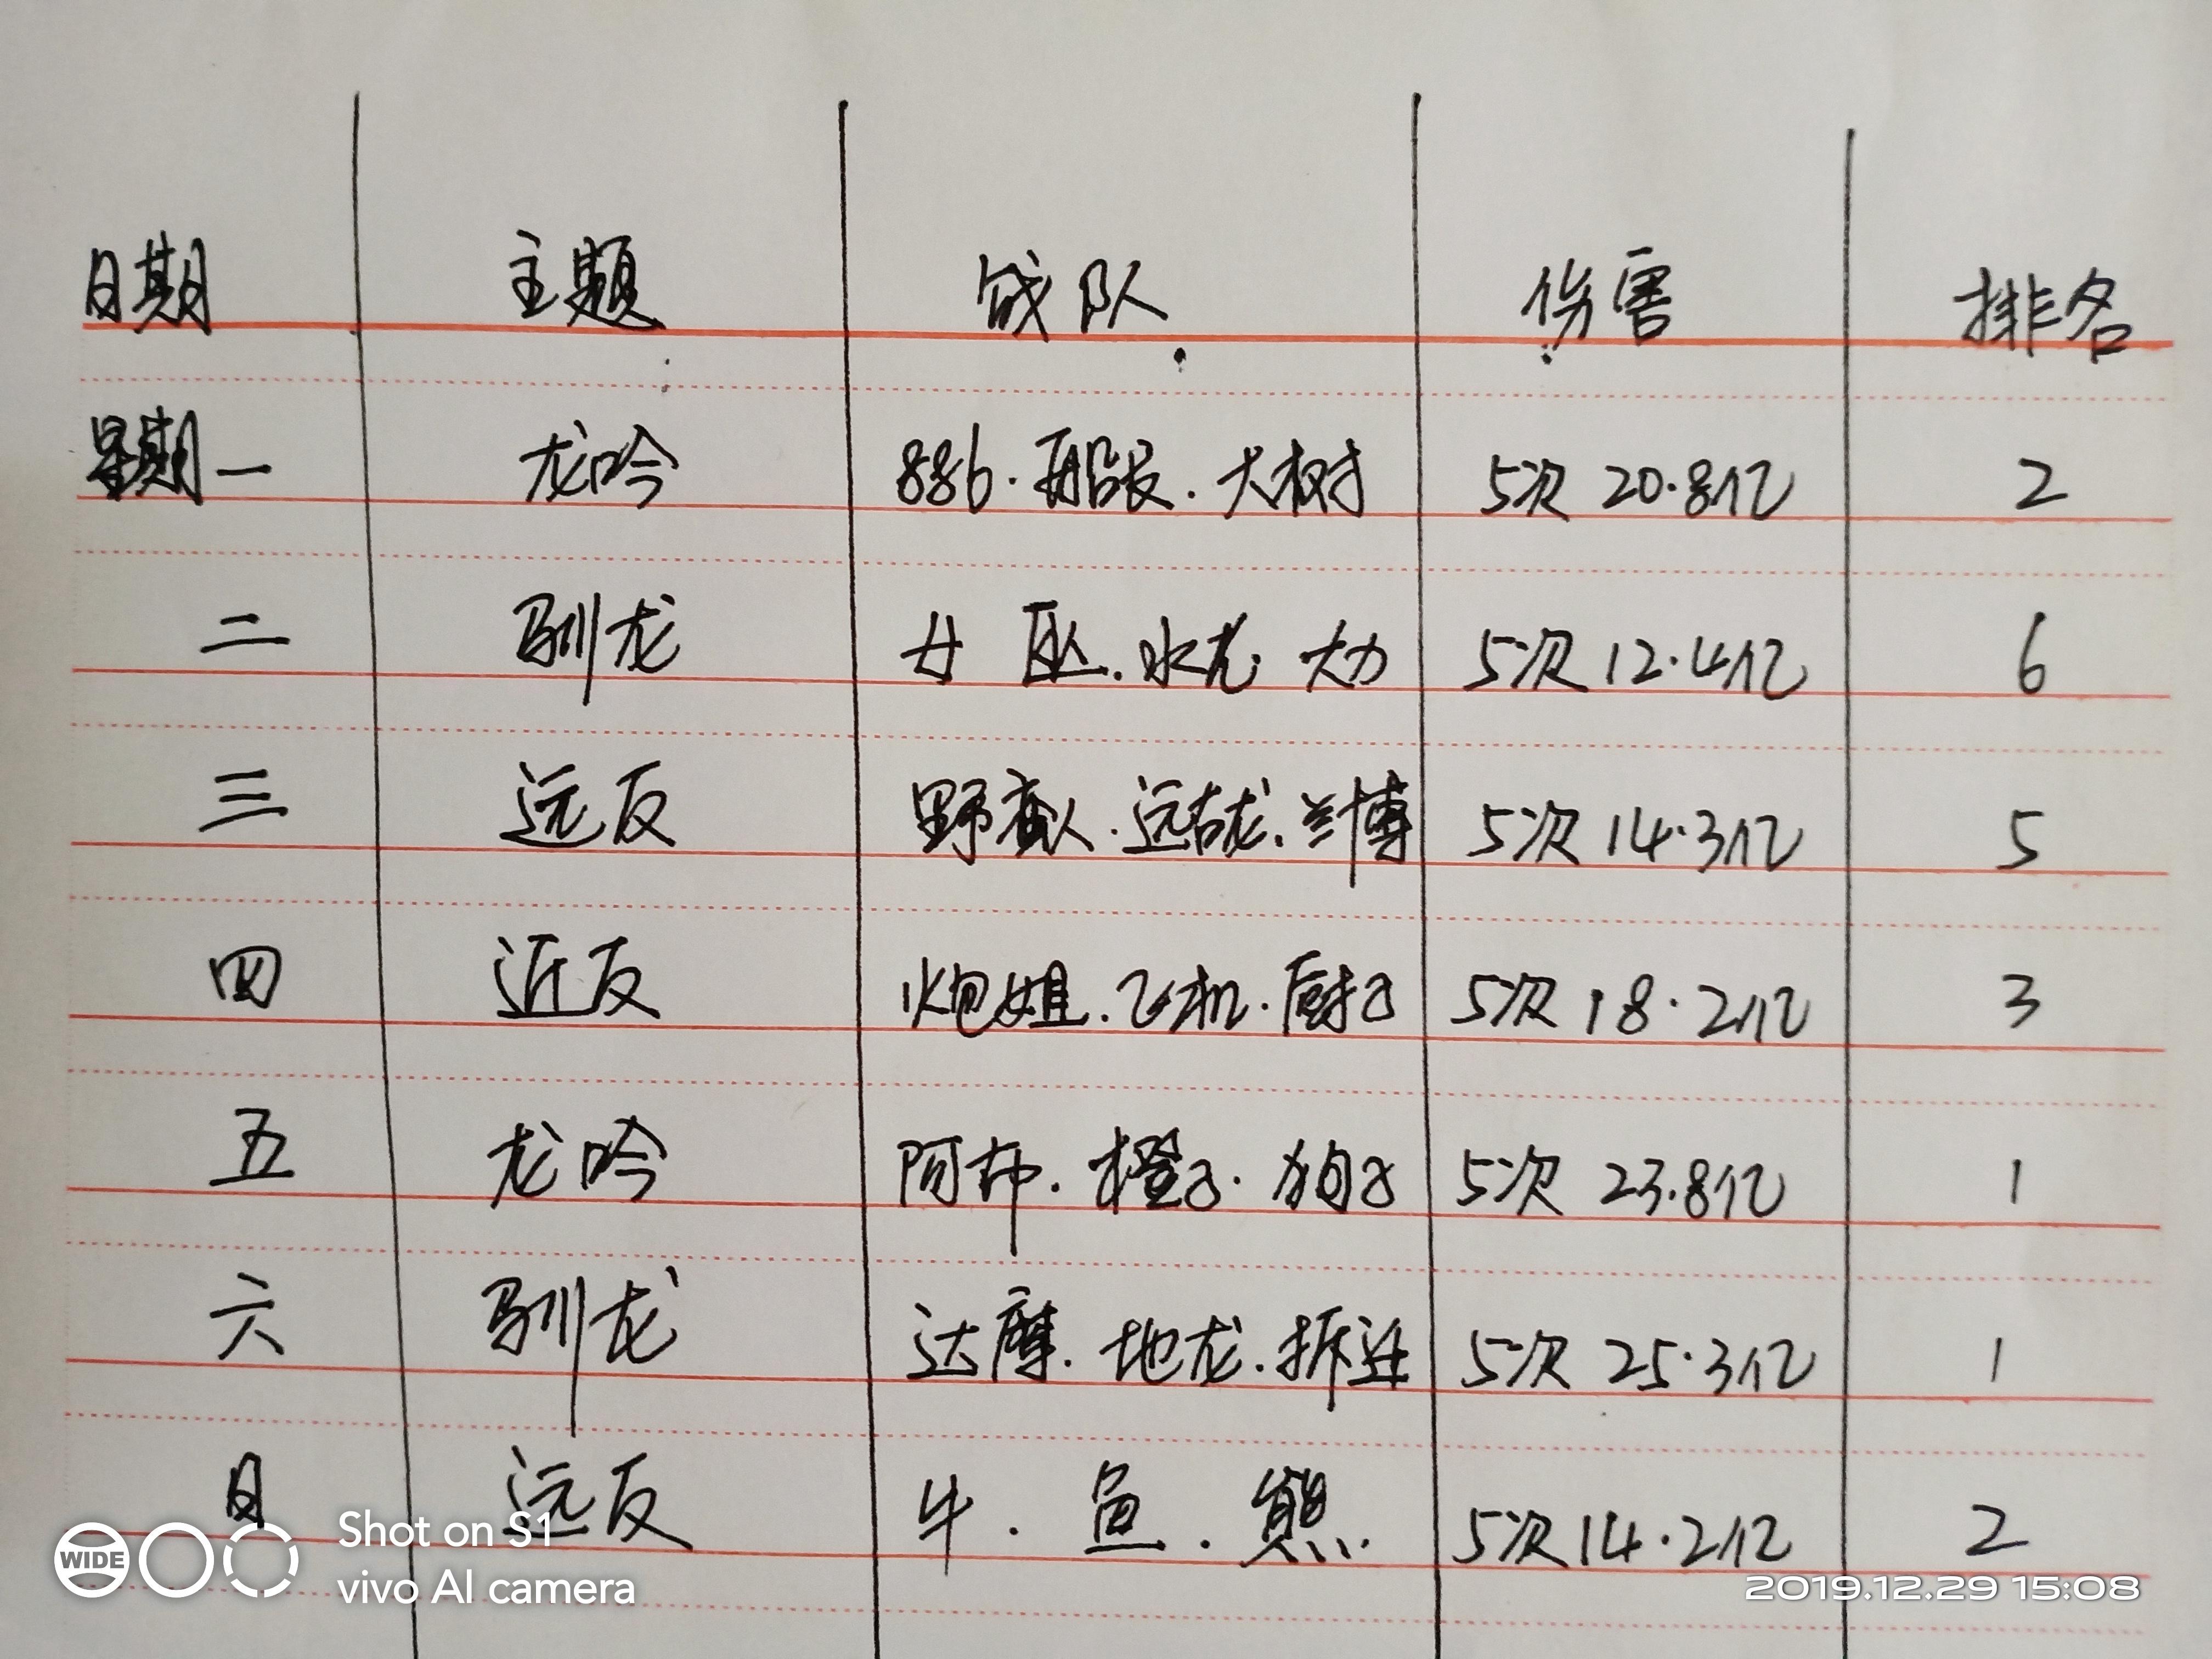 日期 主题 战队 伤害 排名
星期一 龙吟 886·船长·大树 5次 20.8亿 2
二 驯龙 水龙 大力 5次 12.4亿 6
三 远反 野蛮人·远古龙·兰博 5次 14.3亿 5
四 近反 炮姐·飞机·厨子 5次 18.2亿 3
五 龙吟 阿布·橙子·狗子 5次 23.8亿 1
六 驯龙 达摩·地龙·拆迁 5次 25.3亿 1
日 远反 牛·鱼·熊 5次 14.2亿 2
WIDE
Shot on S1
vivo AI camera
2019.12.29 15:08